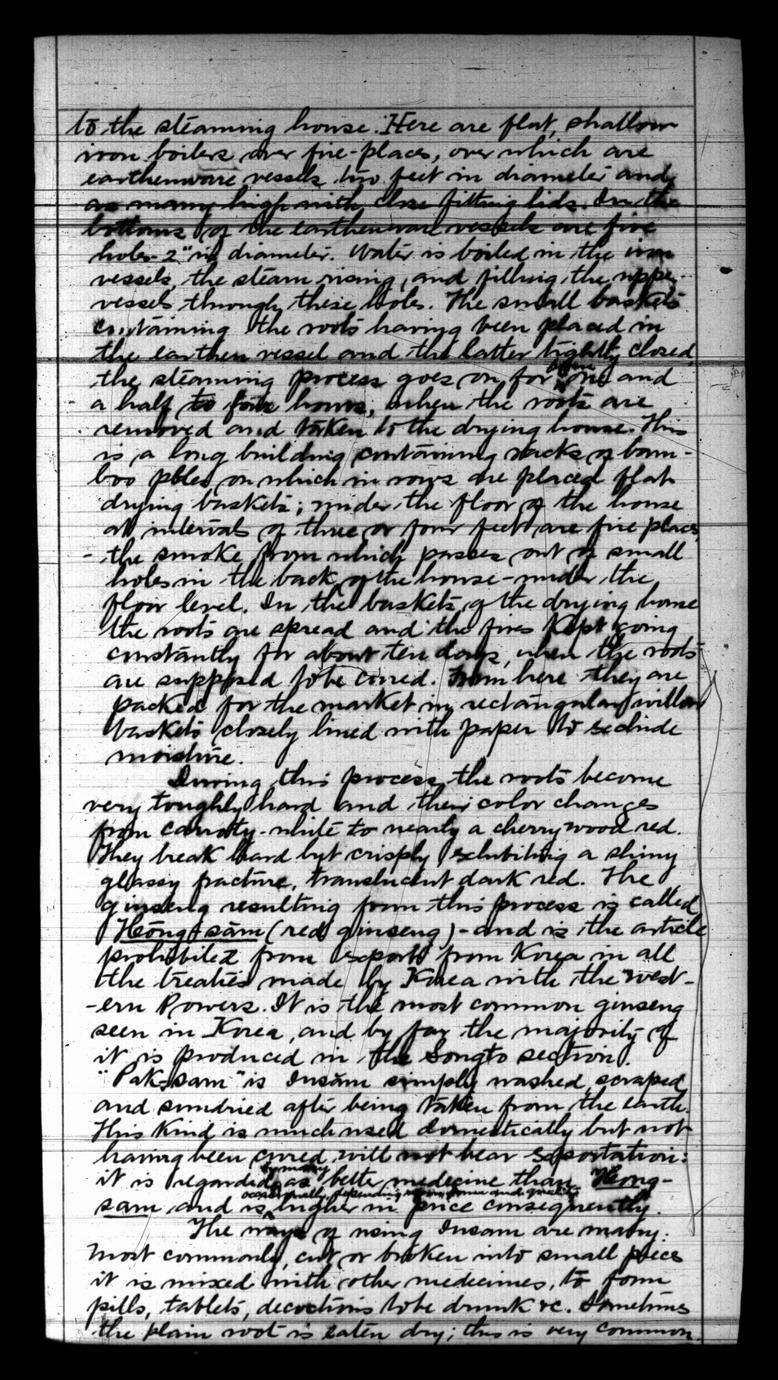 to the steaming house. Here are flat, shallow
iron boilers over fire-places, over which are
earthenware vessels two feet in diameter and
as many high with close fitting lids. In the
bottoms of the earthenware vessels are five
holes 2" in diameter. Water is boiled in the iron
vessels, the steam rising, and filling the upper
vessels through these holes. The small baskets
containing the roots having been placed in
the earthen vessel and the latter tightly closed,
the steaming process goes on for one and
a half to four hours, when the roots are
removed and taken to the drying house. This
is a long building containing racks of bam-
boo poles on which in rows are placed flat
drying baskets; under the floor of the house
at intervals of three or four feet are fire places
- the smoke from which passes out of small
holes in the back of the house - under the
floor level. In the baskets of the drying house
the roots are spread and the fires kept going
constantly for about ten days, when the roots
are supposed to be cured. From here they are
packed for the market in rectangular willow
baskets closely lined with paper to exclude
moisture.
During this process the roots become
very toughly hard and their color changes
from carroty-white to nearly a cherrywood red.
They break hard but crisply exhibiting a shiny
glassy fracture, translucent dark red. The
ginseng resulting from this process is called
Hong-sam (red ginseng) - and is the article
prohibited from export from Korea in all
the treaties made by Korea with the west-
-ern Powers. It is the most common ginseng
seen in Korea, and by far the majority of
it is produced in the Songto section.
"Pak-sam" is Insam simply washed, scraped
and sundried after being taken from the earth.
This kind is much used domestically but not
having been cured will not bear exportation:
it is regarded by many as better medicine than Hong-
sam and is occasionally, depending upon and quality higher in price consequently.
The ways of using Insam are many.
Most commonly, cut or broken into small pieces
it is mixed with other medicines, to form
pills, tablets, decoctions to be drunk &c. Sometimes
the plain root is eaten dry; this is very common